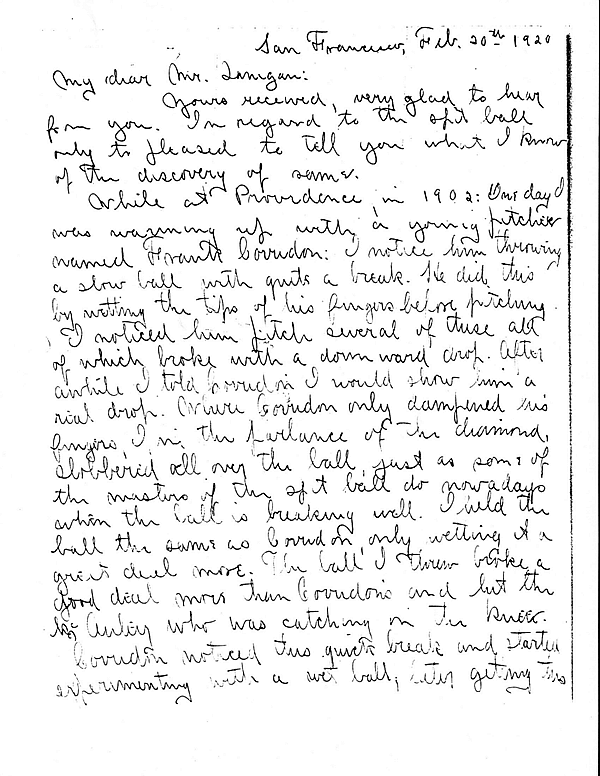 San Francisco, Feb. 20th 1920
My dear Mr. Lanigan:
Yours received, very glad to hear
from you. In regard to the spit ball
only to pleased to tell you what I know
of the discovery of same.
While at Providence, in 1902: One day I
was warming up with a young pitcher
named Frank Corridon: I notice him throwing
a slow ball with quite a break. He did this
by wetting the tips of his fingers before pitching.
I noticed him pitch several of these all
of which broke with a downward drop. After
awhile I told Corridon I would show him a
real drop. Where Corridon only dampened his
fingers, I in the parlance of the diamond,
slobbered all over the ball, just as some of
the masters of the spit ball do nowadays
when the ball is breaking well. I held the
ball the same as Corridon, only wetting it a
great deal more. The ball I threw broke a
good deal more than Corridons and hit the
who was catching on the knee.
Corridon noticed this quick break and started
experimenting with a wet ball, later getting this